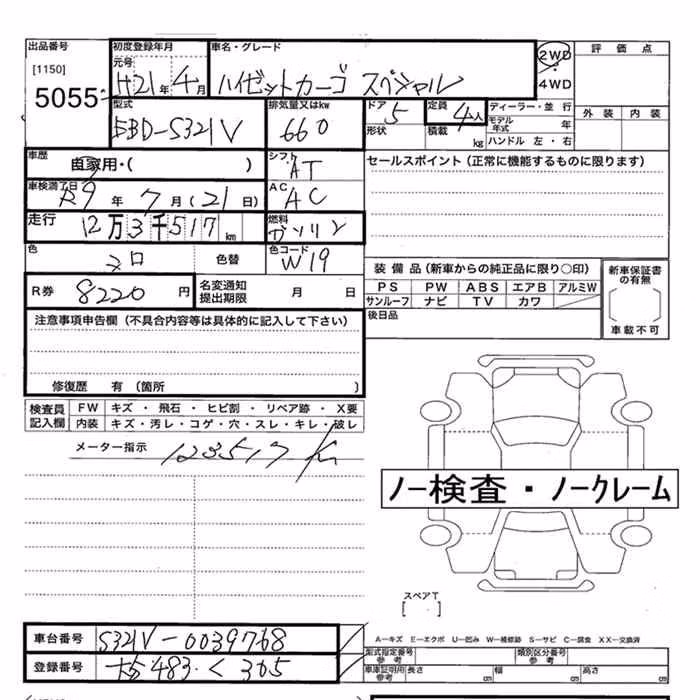 出品番号 初度登録年月 車名・グレード 2WD 評 価 点
[1150] 元号 4WD
5055 H21年 4月 ハイゼットカーゴ スペシャル
型式 排気量又はkw ドア 定員 ディーラー・並 行 外 装 内 装
EBD-S321V 660 5 4人 モデル年式 年
形状 積載 kg ハンドル 左・右
車歴 自家用・( ) シフト AT セールスポイント(正常に機能するものに限ります)
車検満了日 R9 年 7 月(21 日) AC AC
走行 12万3千517 km 燃料 ガソリン
色 シロ 色替 色コード W19
装 備 品(新車からの純正品に限り○印) 新車保証書の有無
R券 8220 円 名変通知提出期限 月 日 PS PW ABS エアB アルミW
サンルーフ ナビ TV カワ
注意事項申告欄(不具合内容等は具体的に記入して下さい) 後日品 車載不可
修復歴 有(箇所 )
検査員記入欄 FW キズ ・ 飛石 ・ ヒビ割 ・ リペア跡 ・ X要
内装 キズ・汚レ・コゲ・穴・スレ・キレ・破レ
メーター指示 123517 km
ノー検査・ノークレーム
スペアT
[ ]
車台番号 S321V-0039768
A—キズ E—エクボ U—凹み W—補修跡 S—サビ C—腐食 XX—交換済
型式指定番号 参考 類別区分番号 参考
登録番号 483 く 305
車庫証明記入欄 参考 長さ cm 幅 cm 高さ cm